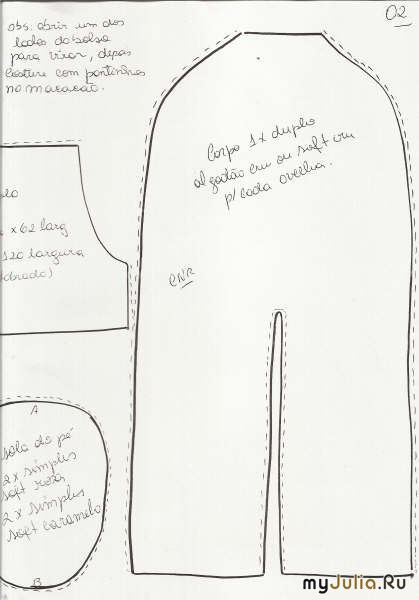 02
obs: abrir um dos
lados do bolso
para virar, depois
costure com pontinhos
no macacão.
Corpo 1x duplo
algodão cru ou soft cru
p/ cada ovelha.
x 62 larg
120 largura
A
sola do pé
2x simples
soft rosa
2x simples
soft caramelo
B
myJulia.Ru